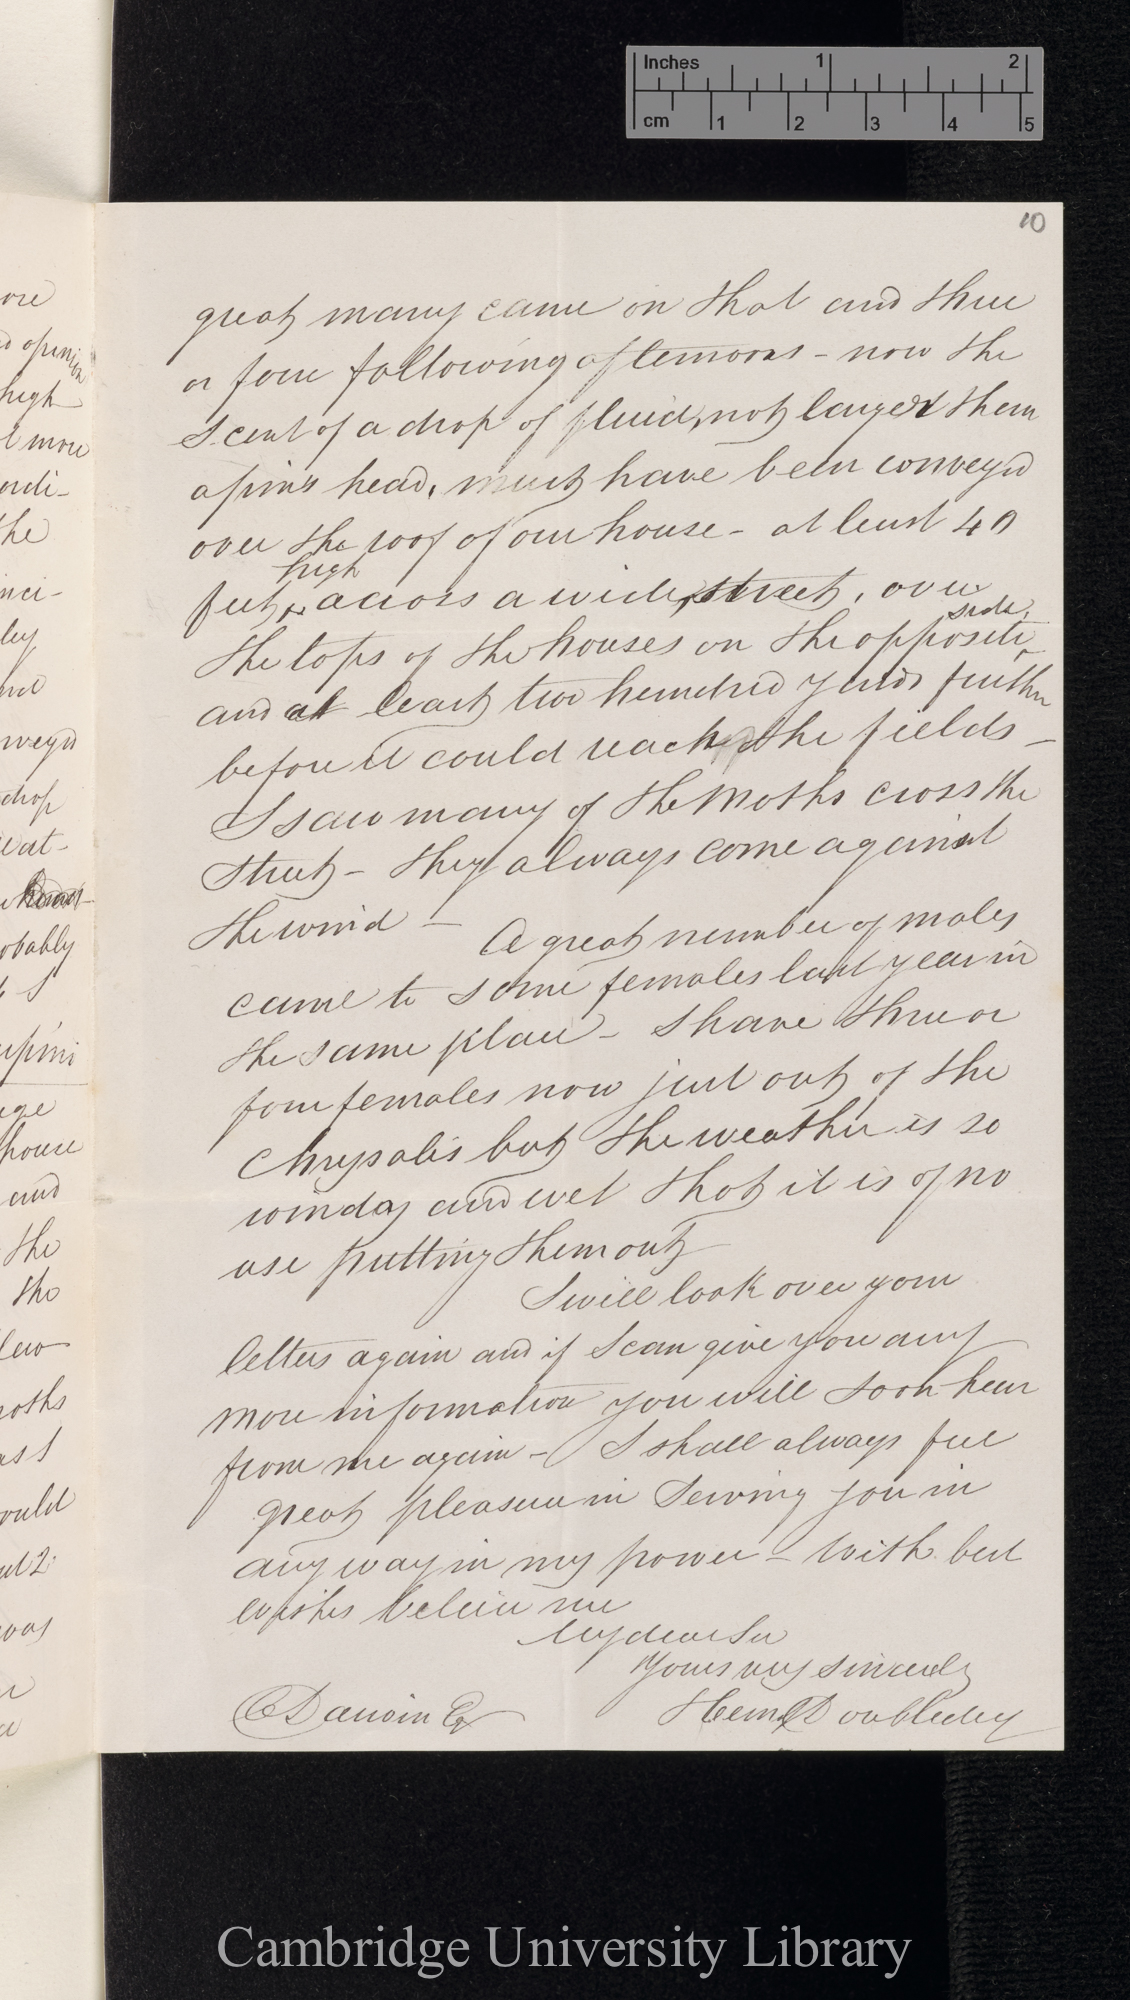 Inches 1 2
cm 1 2 3 4 5
10
great many came on that and three
or four following afternoons - now the
scent of a drop of fluid, not larger than
a pin's head, must have been conveyed
over the roof of our house - at least 40
high
feet, across a wide street, over
side,
the tops of the houses on the opposite
and at least two hundred yards further
before it could reach the fields -
I saw many of the Moths cross the
street - they always come against
the wind - A great number of males
came to some females last year in
the same place - I have three or
four females now just out of the
Chrysalis but the weather is so
windy and wet that it is of no
use putting them out
I will look over your
letters again and if I can give you any
more information you will soon hear
from me again - I shall always feel
great pleasure in serving you in
any way in my power - With best
wishes believe me
My dear Sir
Yours very sincerely
C Darwin Esq
Henry Doubleday
ore
opinion
high
more
the
drop
obably
house
and
the
the
moths
ould
was
Cambridge University Library